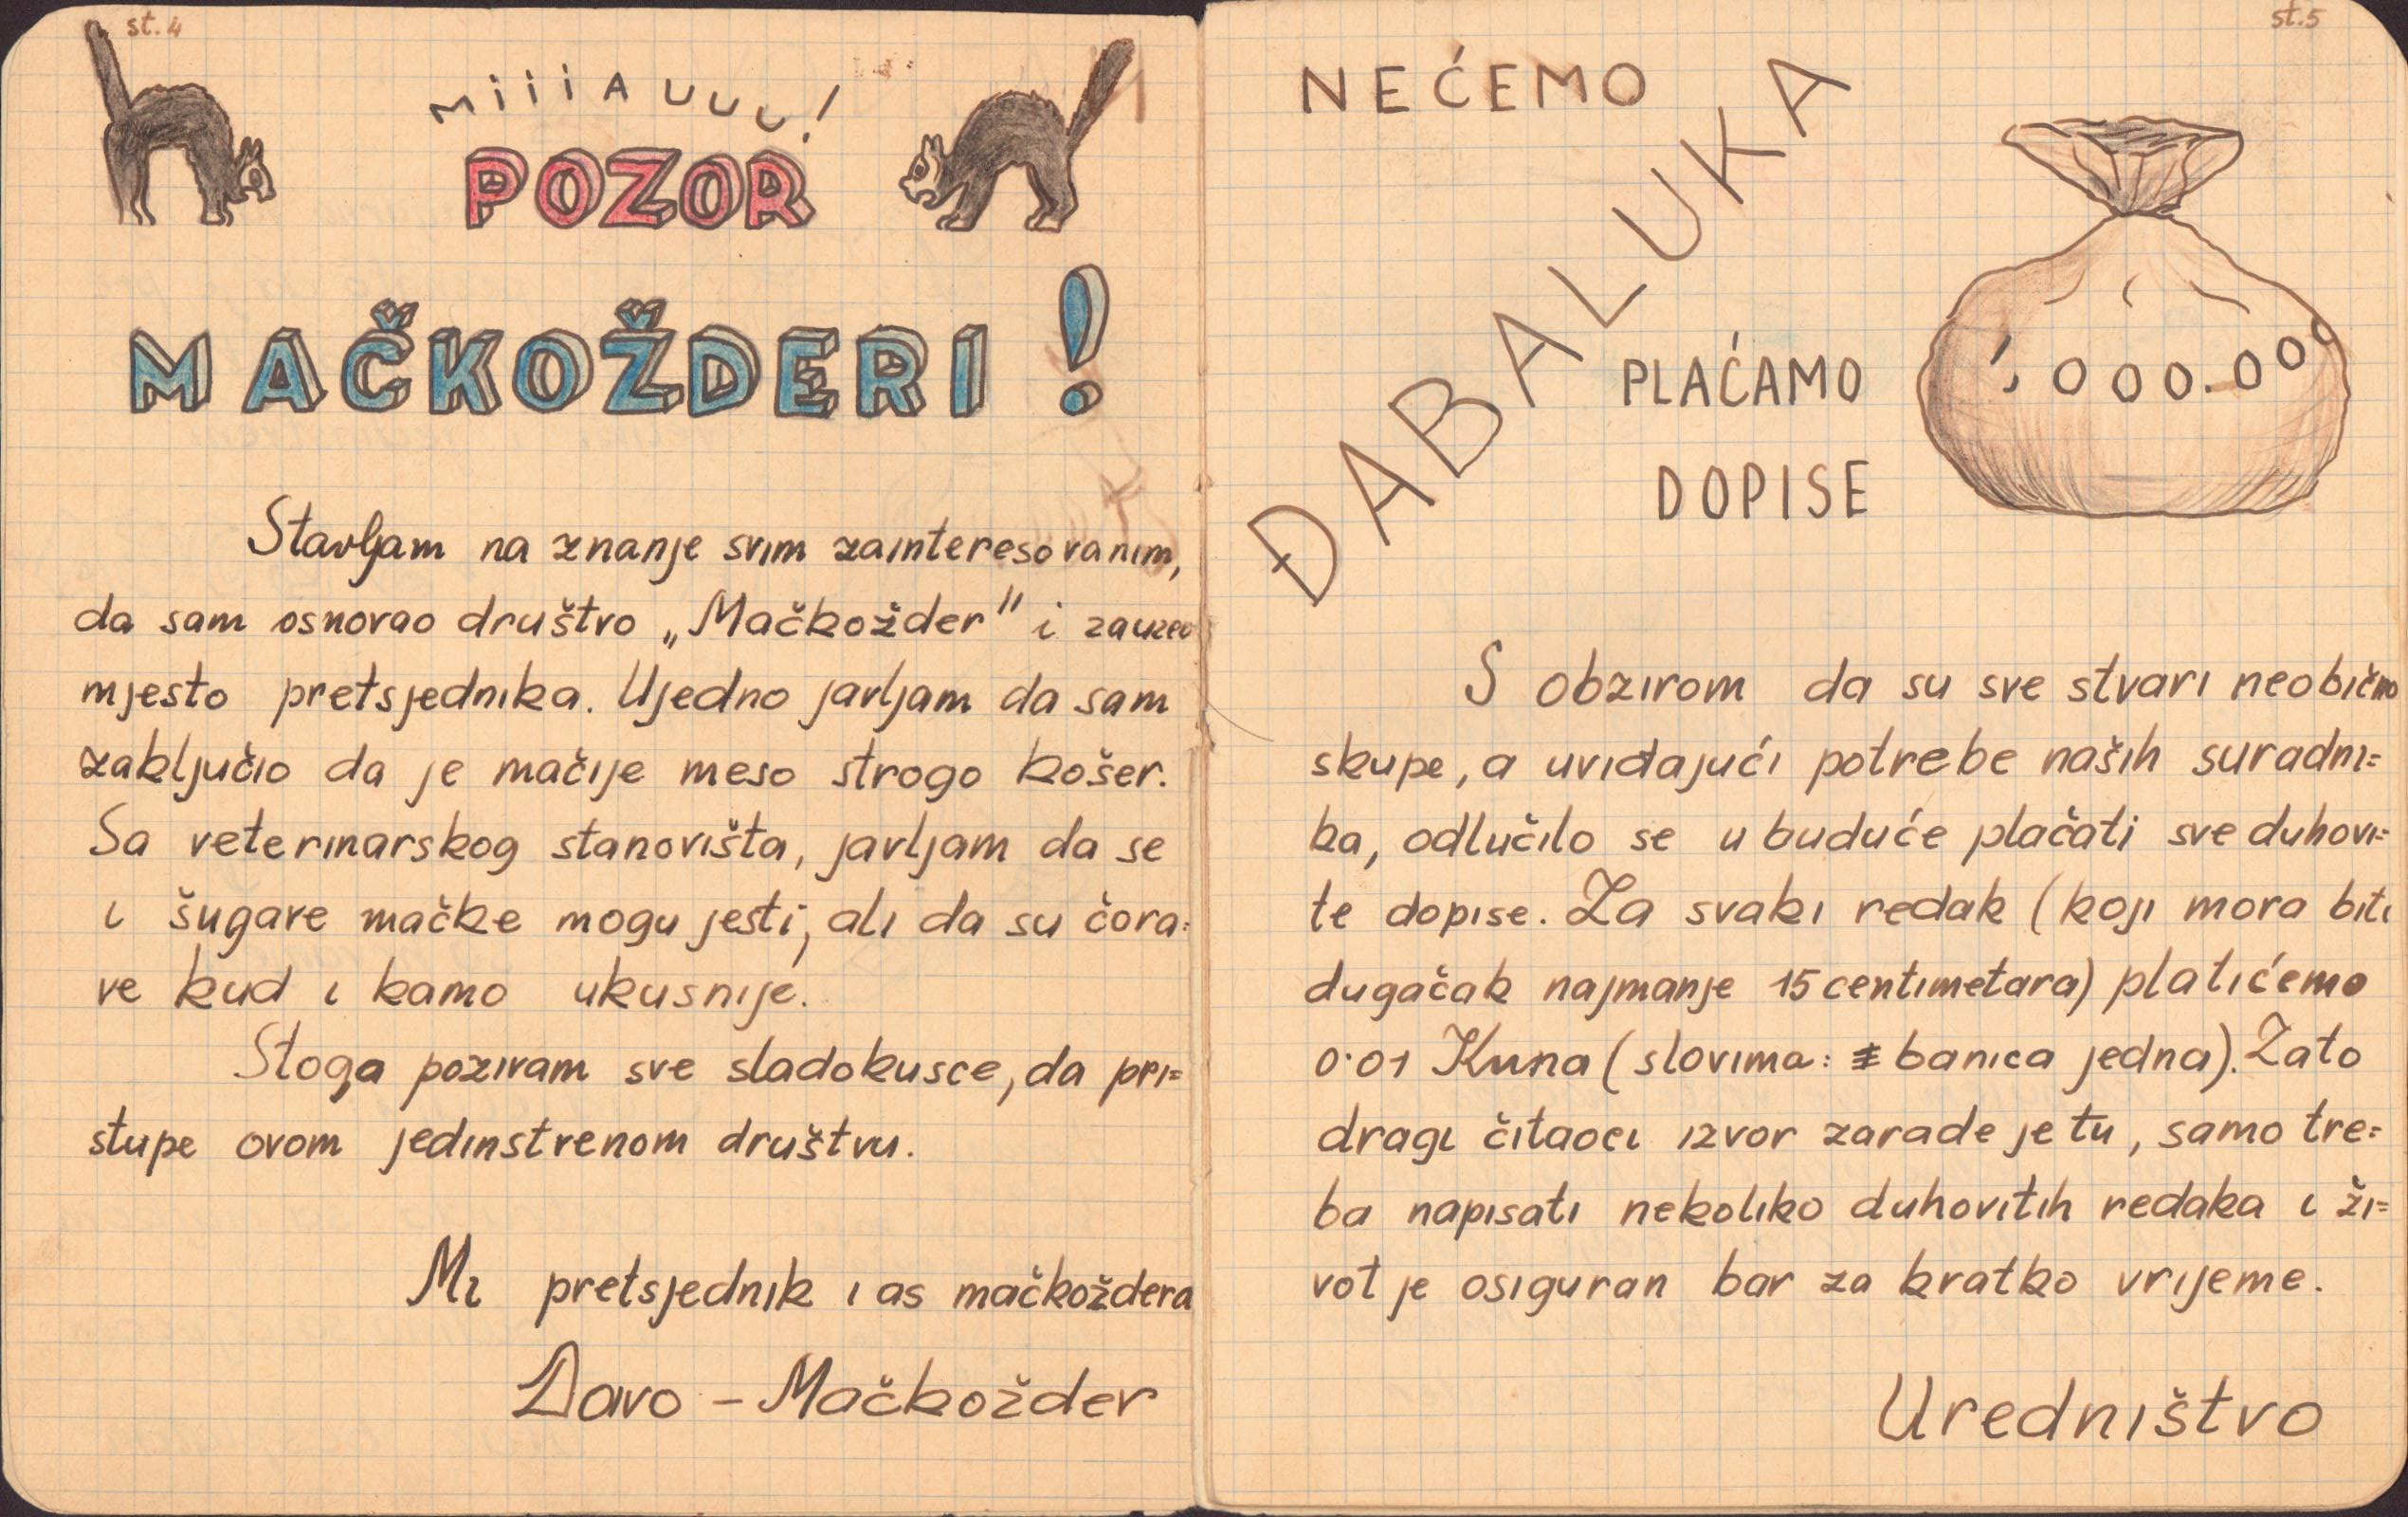 st. 4
MiiiAUUU!
POZOR
MAČKOŽDERI!
Stavljam na znanje svim zainteresovanim,
da sam osnovao društvo „Mačkožder" i zauzeo
mjesto pretsjednika. Ujedno javljam da sam
zaključio da je mačije meso strogo košer.
Sa veterinarskog stanovišta, javljam da se
i šugave mačke mogu jesti, ali da su ćora=
ve kud i kamo ukusnije.
Stoga pozivam sve sladokusce, da pri=
stupe ovom jedinstvenom društvu.
Mi pretsjednik i as mačkoždera
Davo - Mačkožder
st. 5
NEĆEMO
ĐABALUKA
PLAĆAMO
DOPISE
000.00
S obzirom da su sve stvari neobično
skupe, a uviđajući potrebe naših suradni=
ka, odlučilo se u buduće plačati sve duhovi=
te dopise. Za svaki redak (koji mora biti
dugačak najmanje 15 centimetara) platićemo
0·01 Kuna (slovima: banica jedna). Zato
dragi čitaoci izvor zarade je tu, samo tre=
ba napisati nekoliko duhovitih redaka i ži=
vot je osiguran bar za kratko vrijeme.
Uredništvo